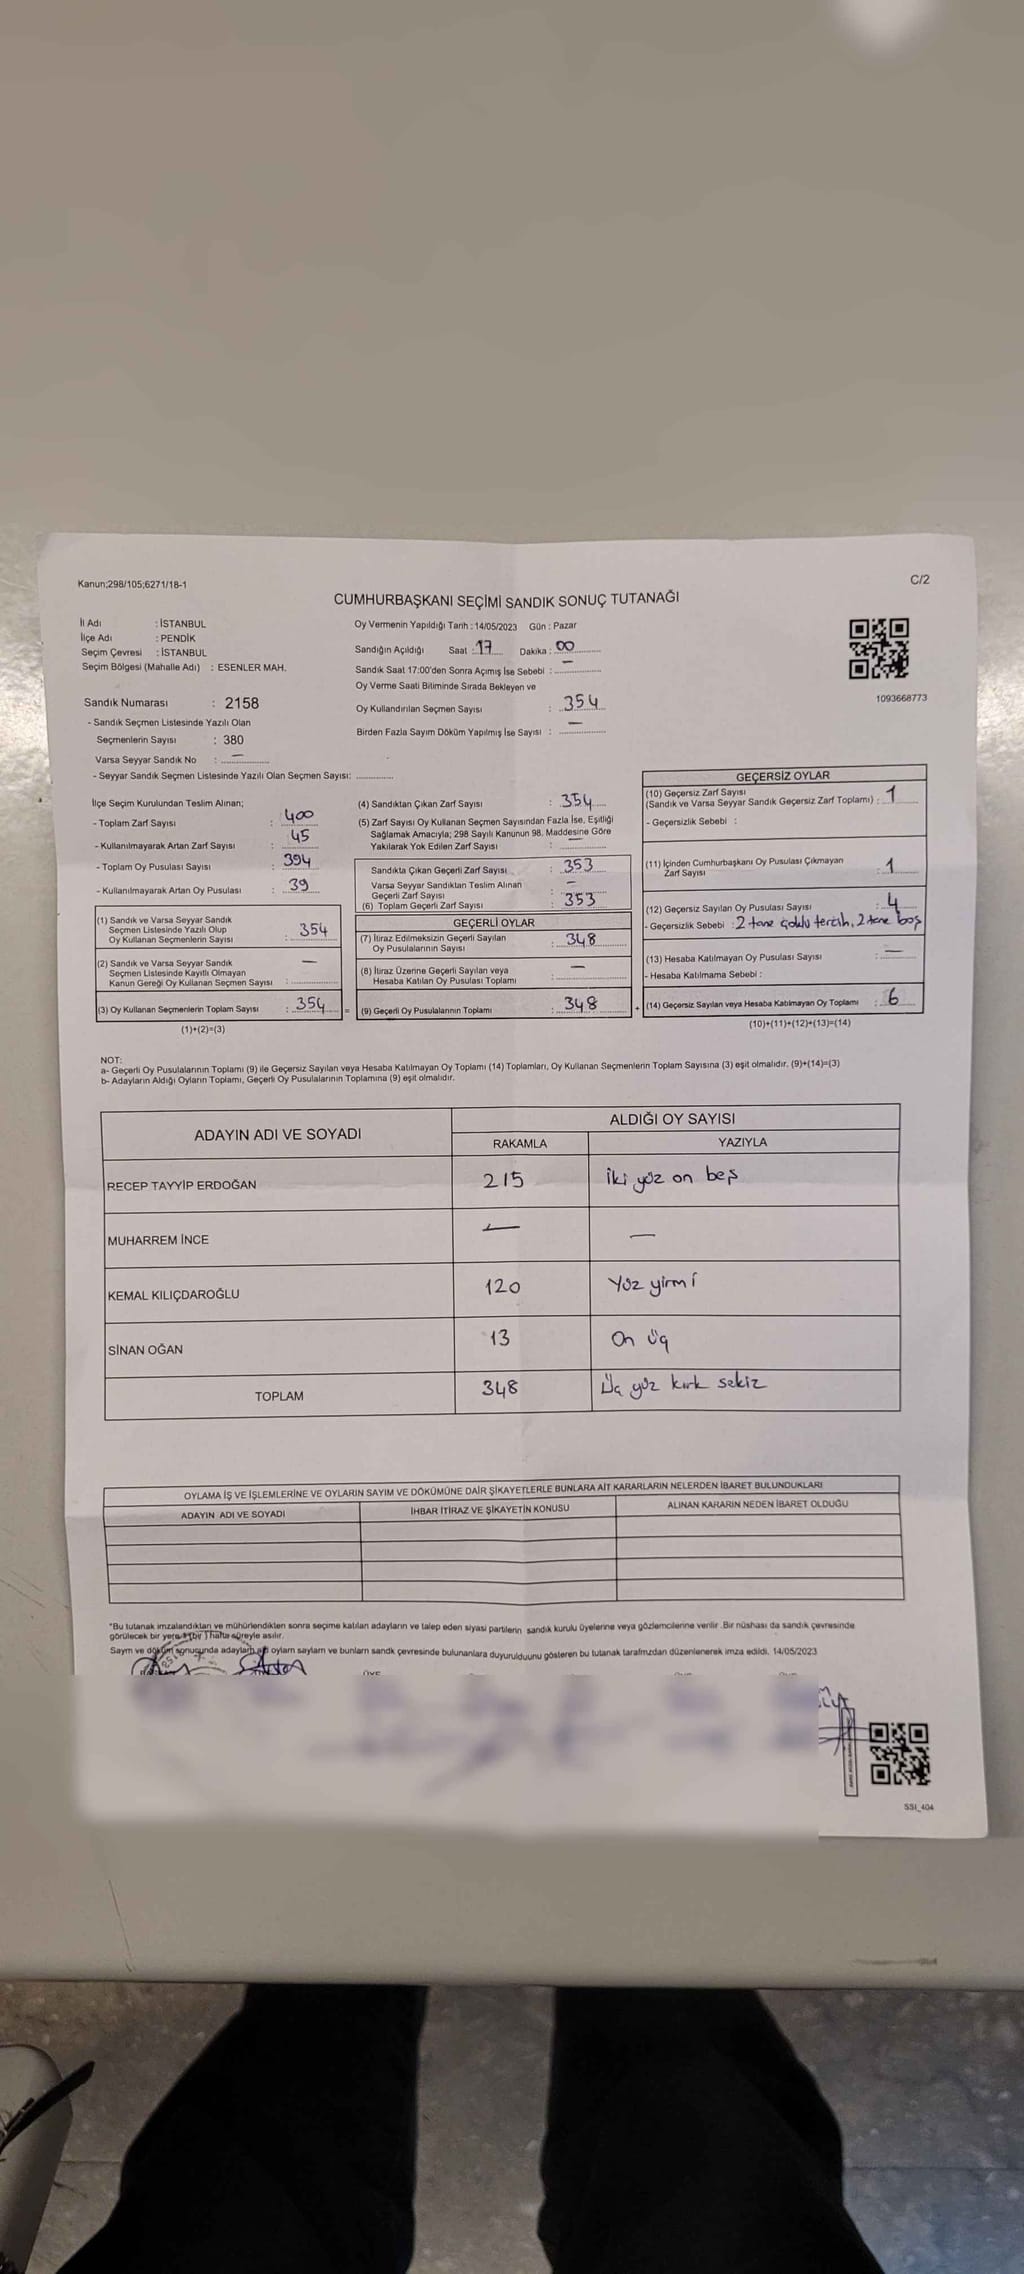 Kanun;298/105;6271/18-1
C/2
CUMHURBAŞKANI SEÇİMİ SANDIK SONUÇ TUTANAĞI
İl Adı : İSTANBUL
İlçe Adı : PENDİK
Seçim Çevresi : İSTANBUL
Seçim Bölgesi (Mahalle Adı) : ESENLER MAH.
Oy Vermenin Yapıldığı Tarih : 14/05/2023 Gün : Pazar
Sandığın Açıldığı Saat : 17 Dakika : 00
Sandık Saat 17:00'den Sonra Açımış İse Sebebi : —
Oy Verme Saati Bitiminde Sırada Bekleyen ve
Oy Kullandırılan Seçmen Sayısı : 354
Birden Fazla Sayım Döküm Yapılmış İse Sayısı : —
1093668773
Sandık Numarası : 2158
- Sandık Seçmen Listesinde Yazılı Olan
Seçmenlerin Sayısı : 380
Varsa Seyyar Sandık No : —
- Seyyar Sandık Seçmen Listesinde Yazılı Olan Seçmen Sayısı:
İlçe Seçim Kurulundan Teslim Alınan;
- Toplam Zarf Sayısı : 400
- Kullanılmayarak Artan Zarf Sayısı : 45
- Toplam Oy Pusulası Sayısı : 394
- Kullanılmayarak Artan Oy Pusulası : 39
(1) Sandık ve Varsa Seyyar Sandık
Seçmen Listesinde Yazılı Olup
Oy Kullanan Seçmenlerin Sayısı : 354
(2) Sandık ve Varsa Seyyar Sandık
Seçmen Listesinde Kayıtlı Olmayan
Kanun Gereği Oy Kullanan Seçmen Sayısı : —
(3) Oy Kullanan Seçmenlerin Toplam Sayısı : 354
(1)+(2)=(3)
(4) Sandıktan Çıkan Zarf Sayısı : 354
(5) Zarf Sayısı Oy Kullanan Seçmen Sayısından Fazla İse, Eşitliği
Sağlamak Amacıyla; 298 Sayılı Kanunun 98. Maddesine Göre
Yakılarak Yok Edilen Zarf Sayısı : —
Sandıkta Çıkan Geçerli Zarf Sayısı : 353
Varsa Seyyar Sandıktan Teslim Alınan
Geçerli Zarf Sayısı : —
(6) Toplam Geçerli Zarf Sayısı : 353
GEÇERLİ OYLAR
(7) İtiraz Edilmeksizin Geçerli Sayılan
Oy Pusulalarının Sayısı : 348
(8) İtiraz Üzerine Geçerli Sayılan veya
Hesaba Katılan Oy Pusulası Toplamı : —
= (9) Geçerli Oy Pusulalarının Toplamı : 348
GEÇERSİZ OYLAR
(10) Geçersiz Zarf Sayısı
(Sandık ve Varsa Seyyar Sandık Geçersiz Zarf Toplamı) : 1
- Geçersizlik Sebebi :
(11) İçinden Cumhurbaşkanı Oy Pusulası Çıkmayan
Zarf Sayısı : 1
(12) Geçersiz Sayılan Oy Pusulası Sayısı : 4
- Geçersizlik Sebebi : 2 tane çoklu tercih, 2 tane boş
(13) Hesaba Katılmayan Oy Pusulası Sayısı : —
- Hesaba Katılmama Sebebi :
+ (14) Geçersiz Sayılan veya Hesaba Katılmayan Oy Toplamı : 6
(10)+(11)+(12)+(13)=(14)
NOT:
a- Geçerli Oy Pusulalarının Toplamı (9) ile Geçersiz Sayılan veya Hesaba Katılmayan Oy Toplamı (14) Toplamları, Oy Kullanan Seçmenlerin Toplam Sayısına (3) eşit olmalıdır. (9)+(14)=(3)
b- Adayların Aldığı Oyların Toplamı, Geçerli Oy Pusulalarının Toplamına (9) eşit olmalıdır.
ADAYIN ADI VE SOYADI ALDIĞI OY SAYISI
RAKAMLA YAZIYLA
RECEP TAYYİP ERDOĞAN 215 İki yüz on beş
MUHARREM İNCE — —
KEMAL KILIÇDAROĞLU 120 Yüz yirmi
SİNAN OĞAN 13 On üç
TOPLAM 348 Üç yüz kırk sekiz
OYLAMA İŞ VE İŞLEMLERİNE VE OYLARIN SAYIM VE DÖKÜMÜNE DAİR ŞİKAYETLERLE BUNLARA AİT KARARLARIN NELERDEN İBARET BULUNDUKLARI
ADAYIN ADI VE SOYADI İHBAR İTİRAZ VE ŞİKAYETİN KONUSU ALINAN KARARIN NEDEN İBARET OLDUĞU
*Bu tutanak imzalandıktan ve mühürlendikten sonra seçime katılan adayların ve talep eden siyasi partilerin sandık kurulu üyelerine veya gözlemcilerine verilir .Bir nüshası da sandık çevresinde
görülecek bir yere 1 (bir) hafta süreyle asılır.
Sayım ve döküm sonucunda adayların oyların sayılan ve bunların sandık çevresinde bulunanlara duyurulduunu gösteren bu tutanak tarafımızdan düzenlenerek imza edildi. 14/05/2023
ÜYE
SSI_404